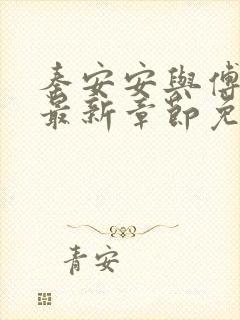 秦安安與傅
最新章節免
青安